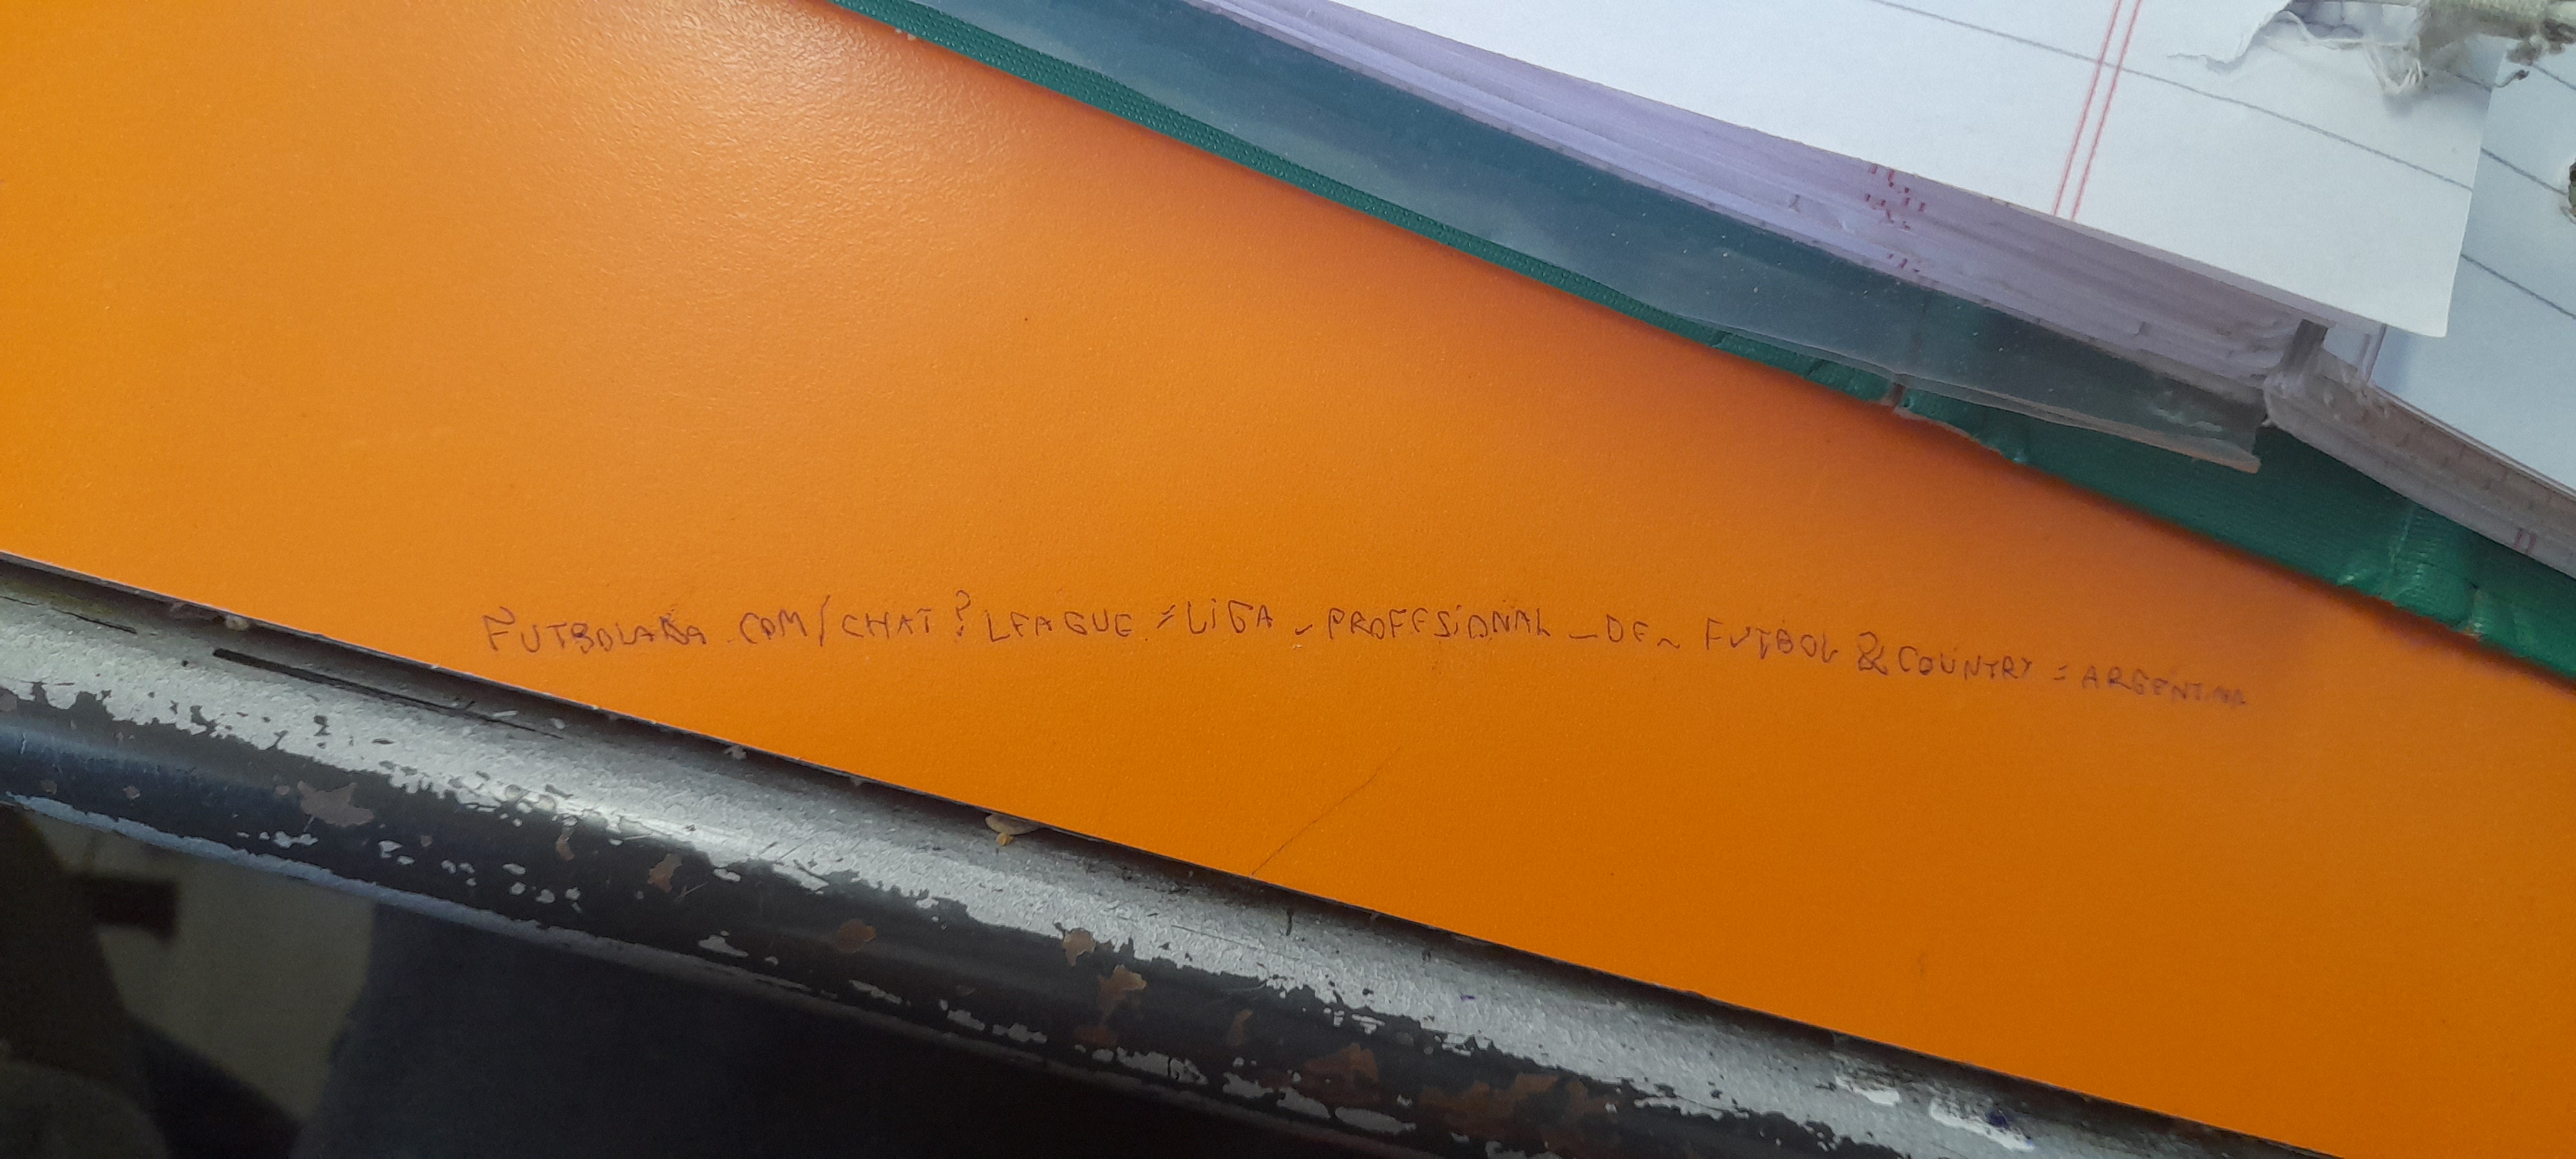 FUTBOLARA.COM/CHAT?LEAGUE=LIGA-PROFESIONAL-DE-FUTBOL&COUNTRY=ARGENTINA